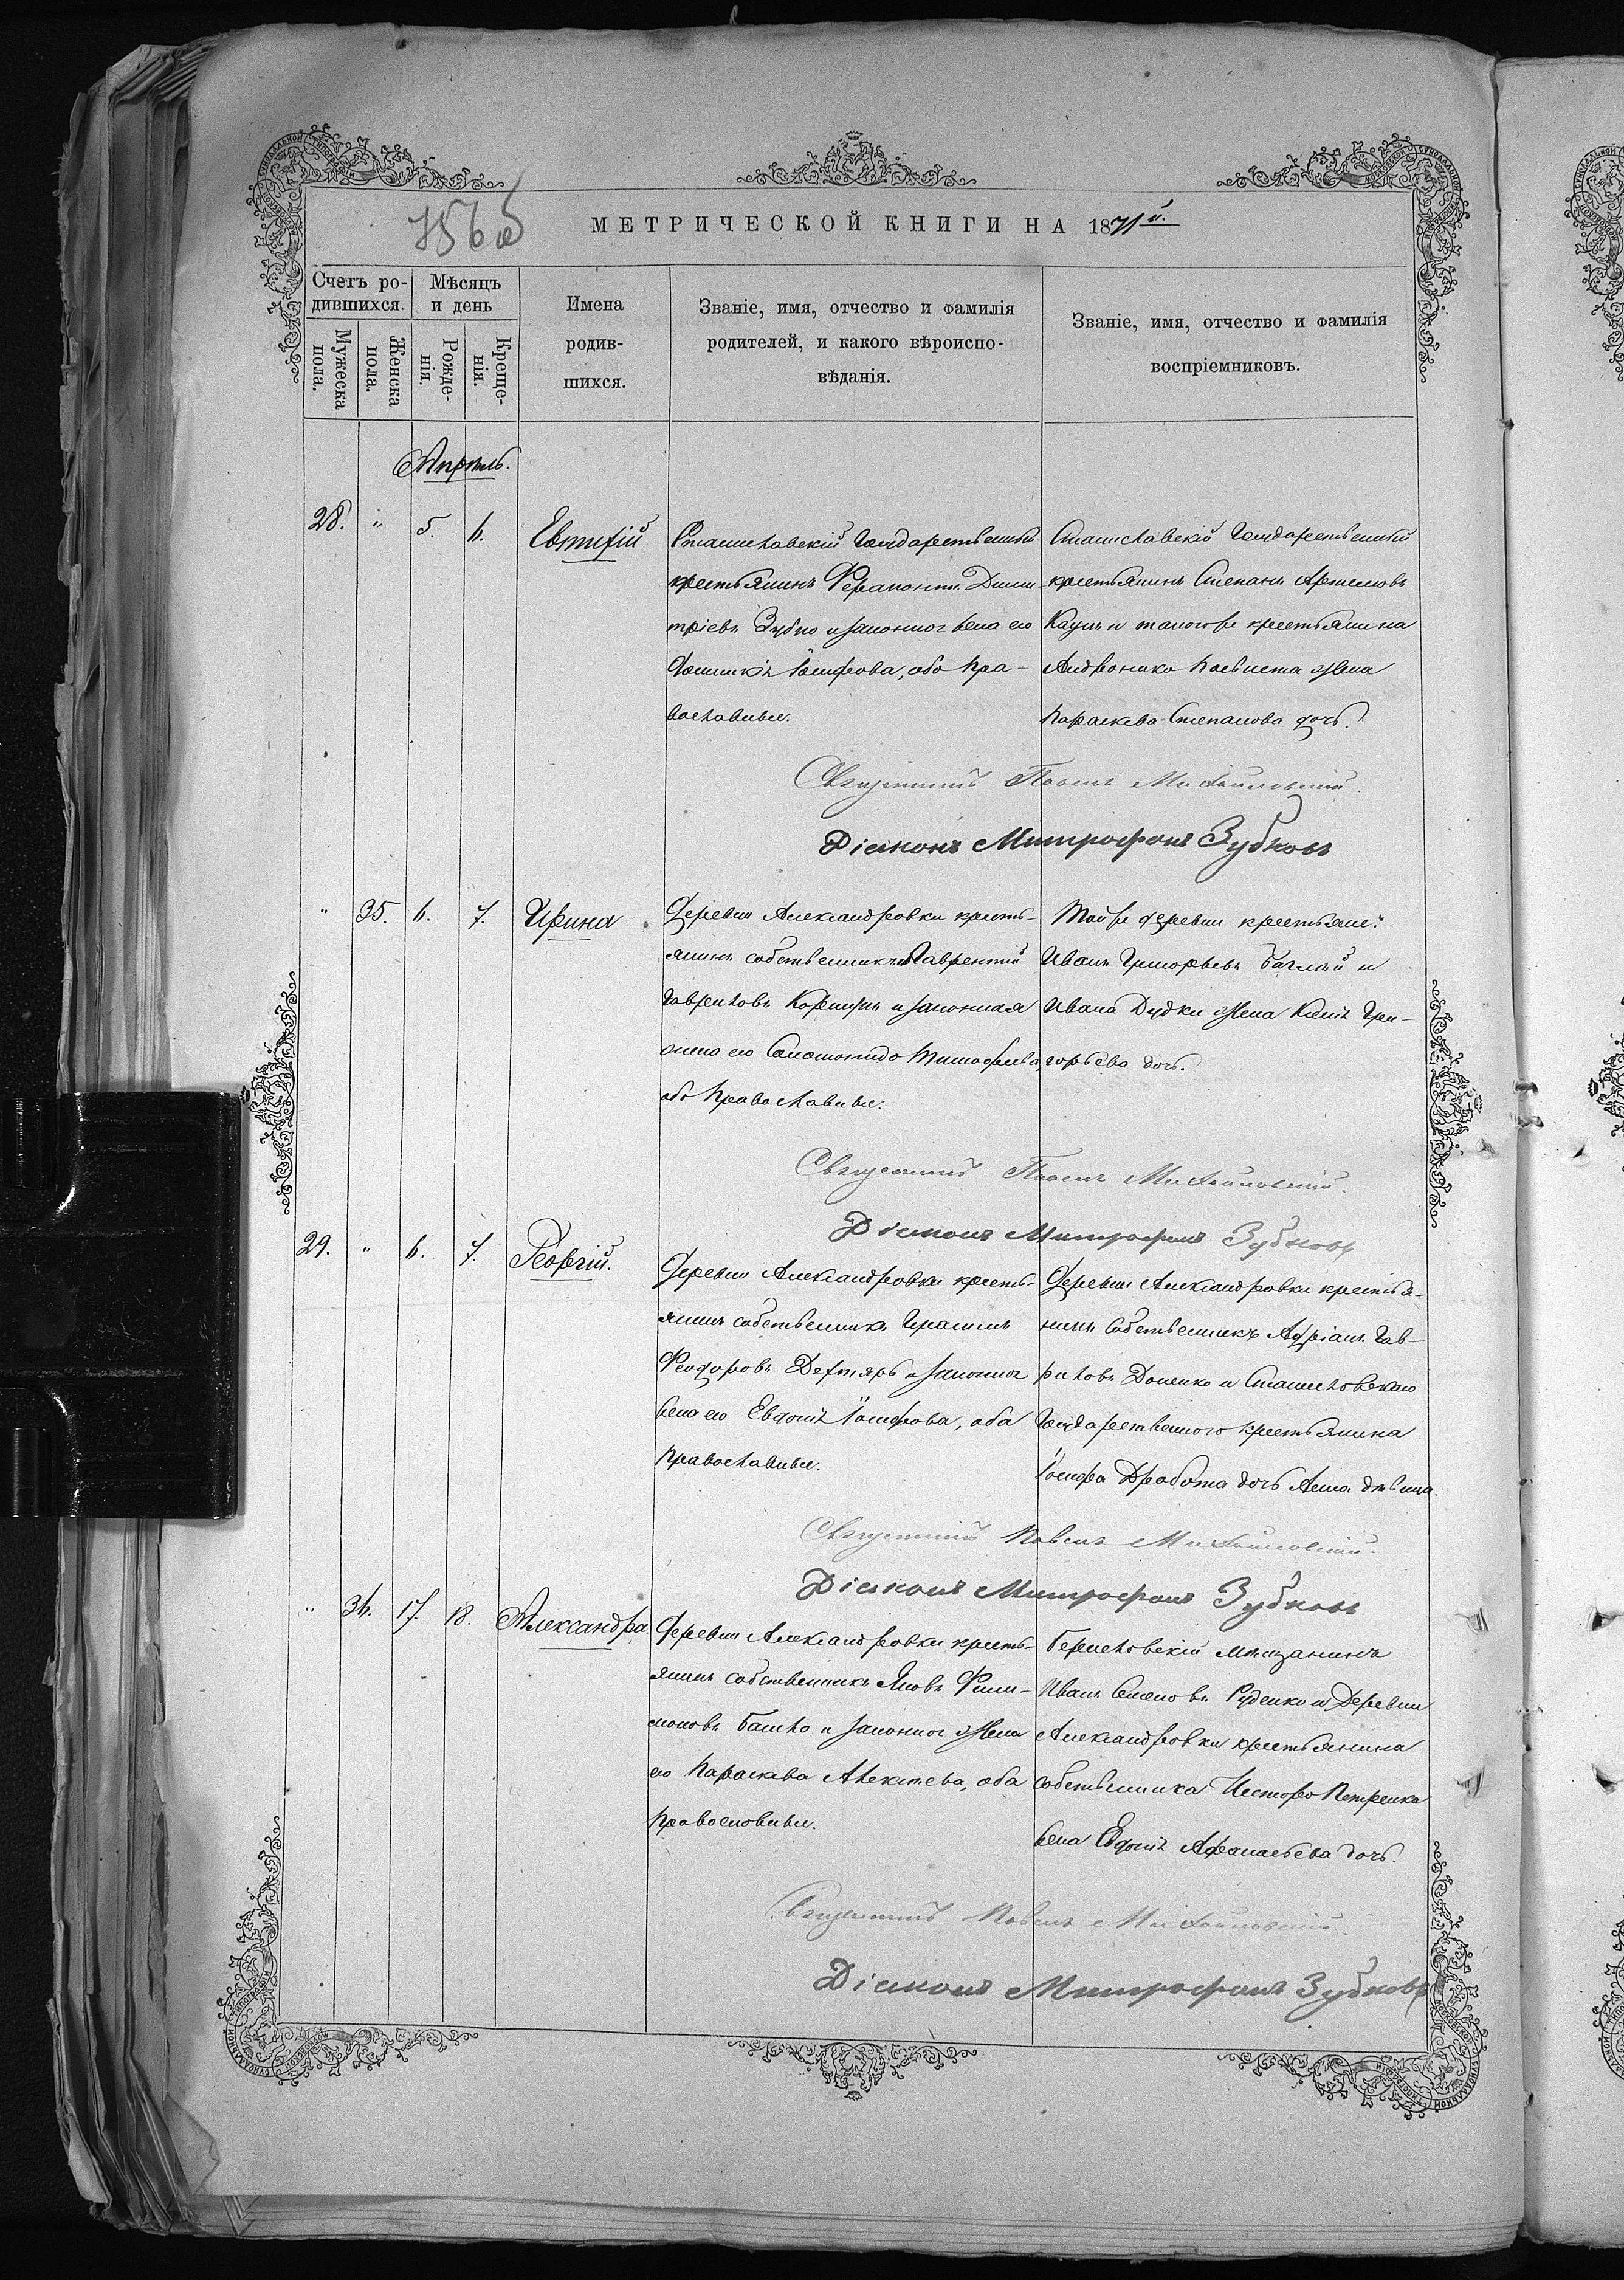 756 об
МЕТРИЧЕСКОЙ КНИГИ НА 1871й.
Счетъ ро-
дившихся.
Мѣсяцъ
и день
Мужеска
пола.
Женска
пола.
Рожде-
нія.
Креще-
нія.
Имена
родив-
шихся.
Званіе, имя, отчество и фамилія
родителей, и какого вѣроиспо-
вѣданія.
Званіе, имя, отчество и фамилія
воспріемниковъ.
Апрѣль.
28. " 5. 6. Евтихій
Станиславскій Государственный
крестьянинъ Ферапонтъ Дими-
тріевъ Зубко и законная жена его
Іосифова, оба пра-
вославные.
Станиславскій Государственный
крестьянинъ Степанъ Артемовъ
Кауль и таковаго крестьянина
Андроника жена
Параскева Степанова дочь.
Священникъ Павелъ Михайловскій.
Діаконъ Митрофанъ Зубковъ
" 35. 6. 7. Ирина
Деревни Александровки кресть-
янинъ собственникъ Лаврентій
Гавриловъ и законная
жена его Соломонида Тимофеева,
оба православные.
Той же деревни крестьяне:
Иванъ Григорьевъ Баглай и
Ивана Дудки жена Ксенія Гри-
горьева дочь.
Священникъ Павелъ Михайловскій.
Діаконъ Митрофанъ Зубковъ
29. " 6. 7. Георгій.
Деревни Александровки кресть-
янинъ собственникъ Герасимъ
Феодоровъ Дехтярь и законная
жена его Евдокія Іосифова, оба
православные.
Деревни Александровки крестья-
нинъ собственникъ Адріанъ Гав-
риловъ Доценко и Станиславскаго
Государственнаго крестьянина
Іосифа Дробота дочь Анна дѣвица.
Священникъ Павелъ Михайловскій.
Діаконъ Митрофанъ Зубковъ
" 36. 17. 18. Александра.
Деревни Александровки кресть-
янинъ собственникъ Яковъ Фили-
моновъ Башко и законная жена
его Параскева Алексѣева, оба
православные.
Бериславскій мѣщанинъ
Иванъ Семеновъ Руденко и Деревни
Александровки крестьянина
собственника Нестора Петренка
жена Евдокія Афанасьева дочь.
Священникъ Павелъ Михайловскій.
Діаконъ Митрофанъ Зубковъ